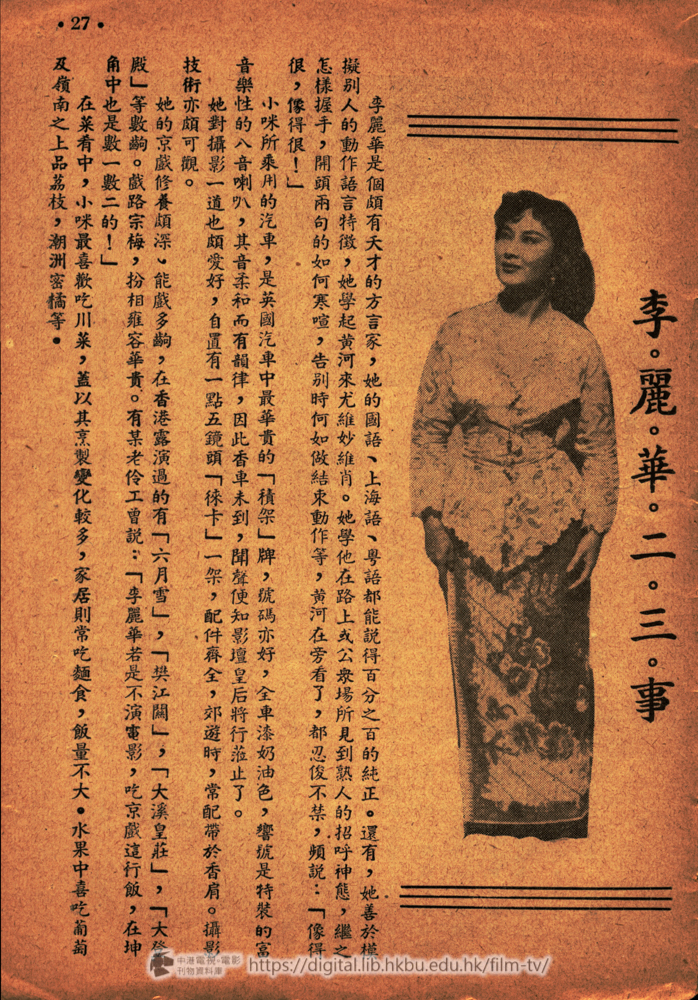 •27•
李。麗。華。二。三。事
李麗華是個頗有天才的方言家，她的國語、上海語、粵語都能説得百分之百的純正。還有，她善於模
擬别人的動作語言特徵，她學起黄河來尤維妙維肖。她學他在路上或公衆場所見到熟人的招呼神態，繼之
怎樣握手，開頭兩句的如何寒喧，告别時何如做結束動作等，黄河在旁看了，都忍俊不禁，頻説：「像得
很，像得很！」
小咪所乘用的汽車，是英國汽車中最華貴的「積架」牌，號碼亦好，全車漆奶油色，響號是特裝的富
音樂性的八音喇叭，其音柔和而有韻律，因此香車未到，聞聲便知影壇皇后將行蒞止了。
她對攝影一道也頗愛好，自置有一點五鏡頭「徠卡」一架，配件齊全，郊遊時，常配帶於香肩。攝影
技術亦頗可觀。
她的京戲修養頗深，能戲多齣，在香港露演過的有「六月雪」，「樊江關」，「大溪皇莊」，「大登
殿」等數齣。戲路宗梅，扮相雍容華貴。有某老伶工曾説：「李麗華若是不演電影，吃京戲這行飯，在坤
角中也是數一數二的！」
在菜肴中，小咪最喜歡吃川菜，蓋以其烹製變化較多，家居則常吃麵食，飯量不大。水果中喜吃葡萄
及嶺南之上品荔枝，潮洲密橘等。
中港電視·電影
刊物資料庫
https://digital.lib.hkbu.edu.hk/film-tv/